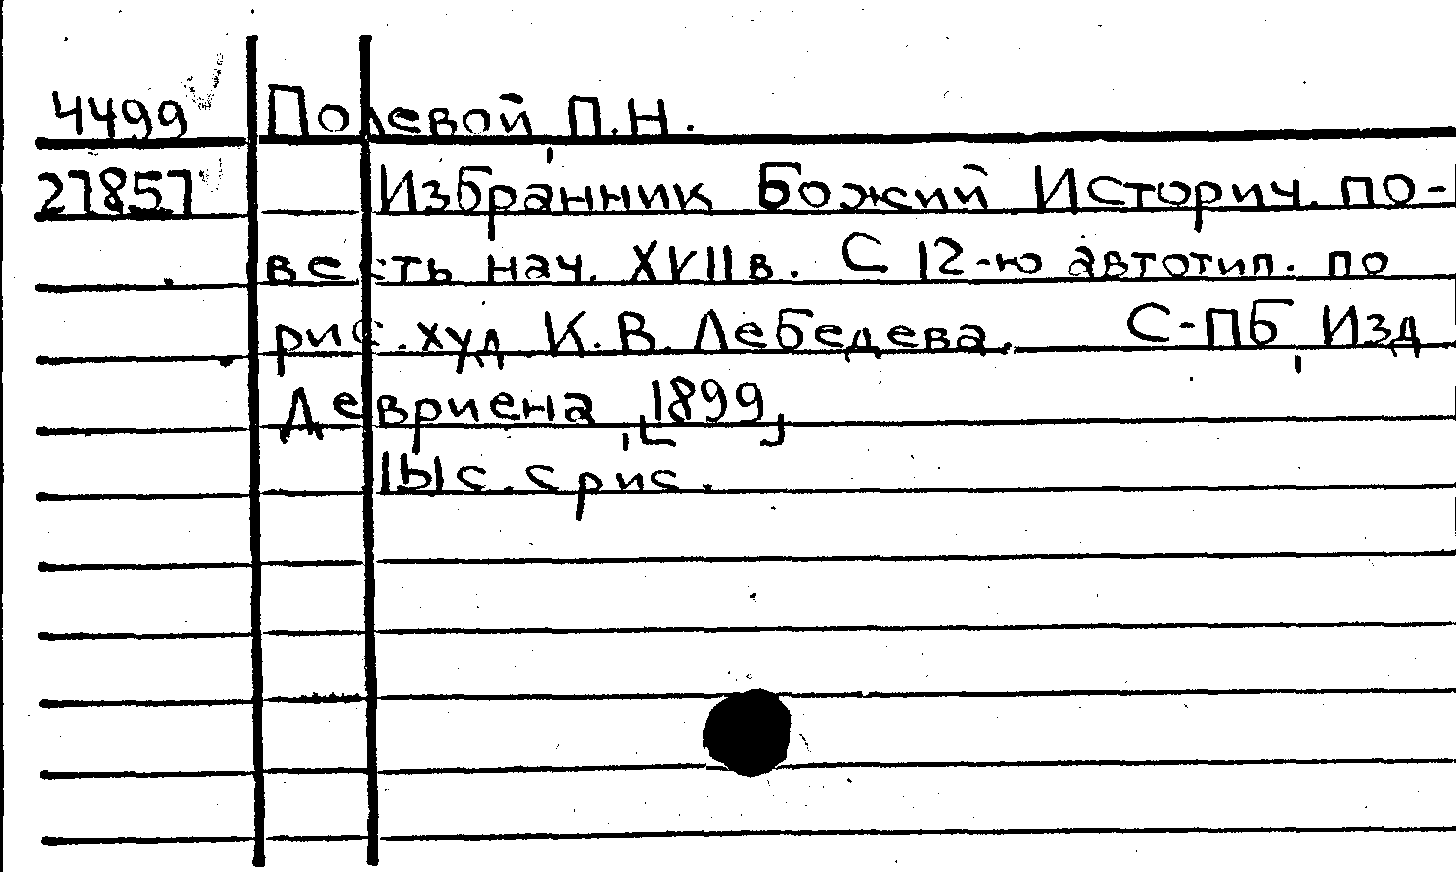 4499 Полевой, П.Н.
27857 Избранник Божий Историч. по-
весть нач. XVII в. С 12-ю автотип. по
рис. худ К.В. Лебедева. С-ПБ, Изд
Девриена, [1899]
161 с. с рис.